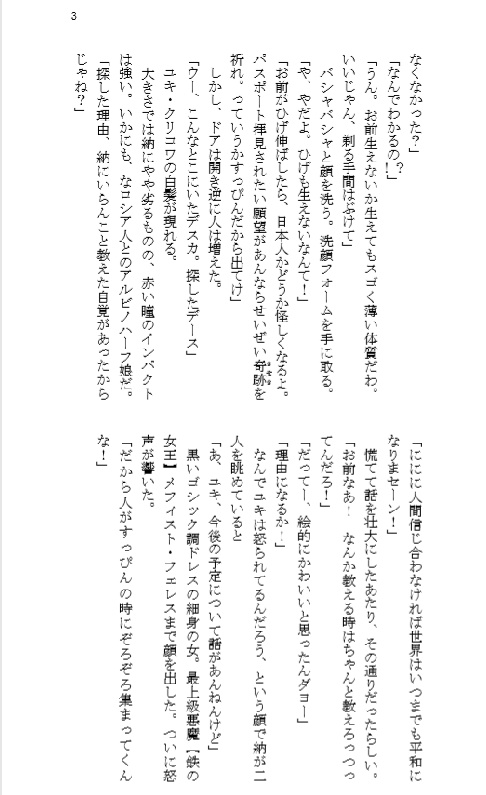 3
なくなかった？」
「なんでわかるの？！」
「うん。お前生えないか生えてもスゴく薄い体質だわ。
いいじゃん、剃る手間はぶけて」
バシャバシャと顔を洗う。洗顔フォームを手に取る。
「や、やだよ。ひげも生えないなんて！」
「お前がひげ伸ばしたら、日本人かどうか怪しくなるよ。
パスポート拝見されたい願望があんならせいぜい奇跡を
祈れ。っていうかすっぴんだから出てけ」
しかし、ドアは開き逆に人は増えた。
「ウー、こんなとこにいたデスカ。探したデース」
ユキ・クリコワの白髪が現れる。
大きさでは納にやや劣るものの、赤い瞳のインパクト
は強い。いかにも、なロシア人とのアルビノハーフ娘だ。
「探した理由、納にいらんこと教えた自覚があったから
じゃね？」
「ににに人間信じ合わなければ世界はいつまでも平和に
なりまセーン！」
慌てて話を壮大にしたあたり、その通りだったらしい。
「お前なあ！　なんか教える時はちゃんと教えろっつっ
てんだろ！」
「だってー、絵的にかわいいと思ったんダヨー」
「理由になるか！」
なんでユキは怒られてるんだろう、という顔で納が二
人を眺めていると
「あ、ユキ、今後の予定について話があんねんけど」
黒いゴシック調ドレスの細身の女。最上級悪魔【鉄の
女王】メフィスト・フェレスまで顔を出した。ついに怒
声が響いた。
「だから人がすっぴんの時にぞろぞろ集まってくん
な！」